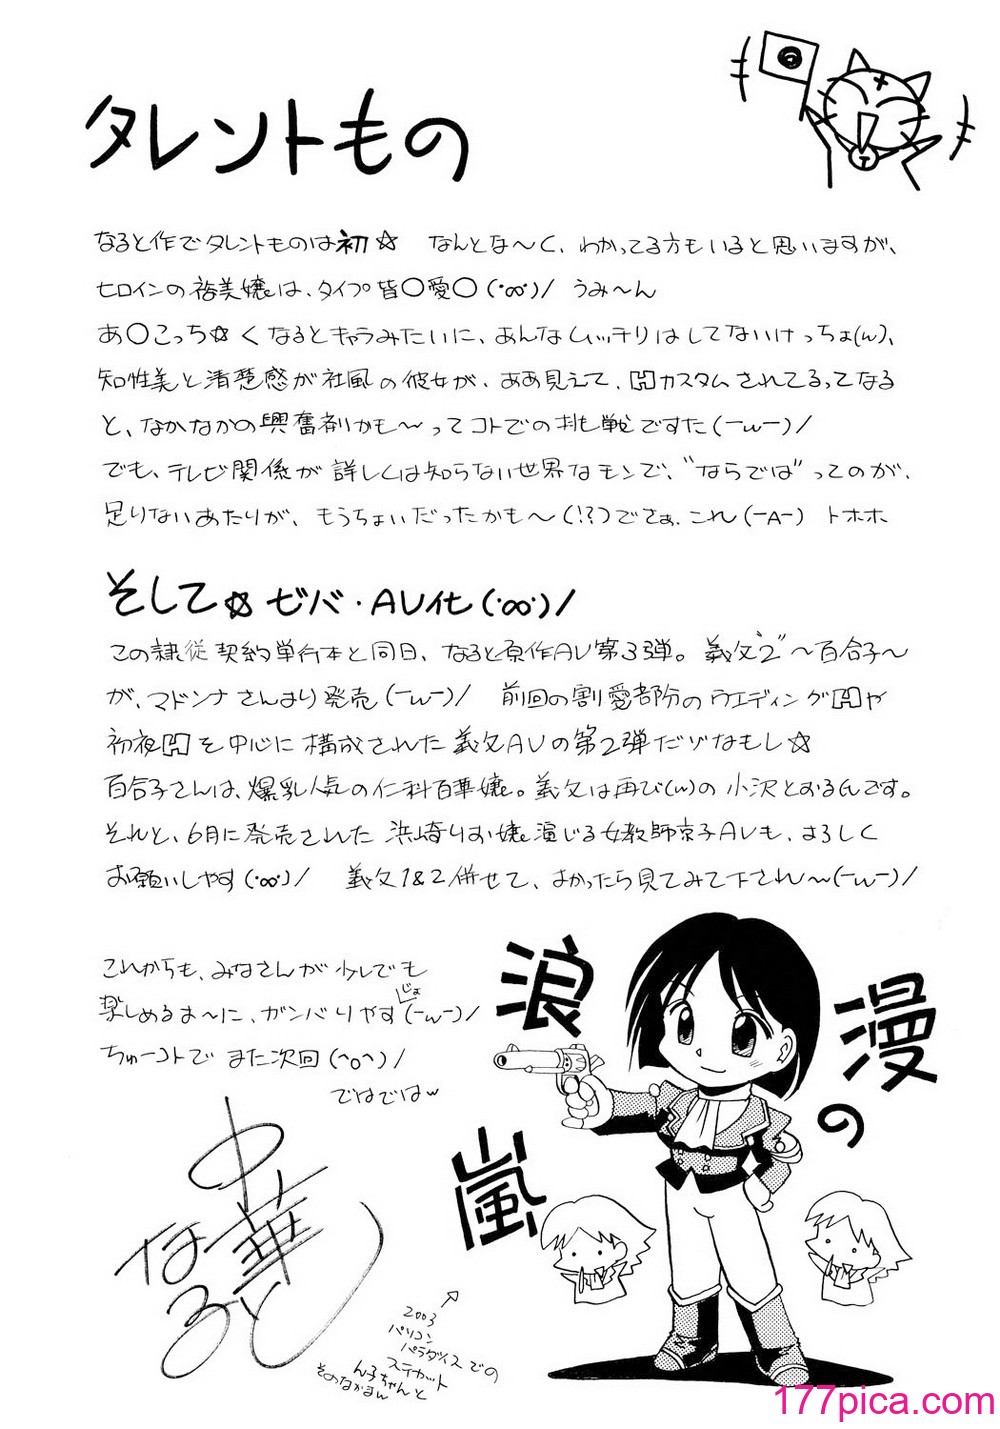 タレントもの
なると作でタレントものは初☆ なんとな〜く、わかってる方もいると思いますが、
ヒロインの裕美嬢は、タイプ皆〇愛〇(・∞・)/ うみ〜ん
あ〇こっち☆くなるとキャラみたいに、あんなムッチリはしてないけっちょ(w)、
知性美と清楚感が社風の彼女が、ああ見えて、Hカスタムされてるってなる
と、なかなかの興奮剤かも〜ってコトでの挑戦ですた(ーwー)/
でも、テレビ関係が詳しくは知らない世界なモンで、"ならでは"ってのが、
足りないあたりが、もうちょいだったかも〜(!?)でさぁ、これ(ーAー) トホホ
そして☆ ビバ・AV化(・∞・)/
この隷従契約単行本と同日、なると原作AV第3弾。義父"2"〜百合子〜
が、マドンナさんより発売(ーwー)/ 前回の割愛部分のウエディングHや
初夜Hを中心に構成された義父AVの第2弾だゾなもし☆
百合子さんは、爆乳人気の仁科百華嬢。義父は再び(w)の小沢とおるんです。
それと、6月に発売された浜崎りお嬢演じる女教師京子AVも、よろしく
お願いしやす(・∞・)/ 義父1&2併せて、よかったら見てみて下され〜(ーwー)/
これからも、みなさんが少しでも
楽しめるよ〜に、ガンバりやすじょ(ーwー)/
ちゅーコトでまた次回(^o^)/
ではではw
浪漫の嵐
中華なると
2003
パソコン
パラダイスでの
ステカット
ん子ちゃんと
そのなかまw
177pica.com